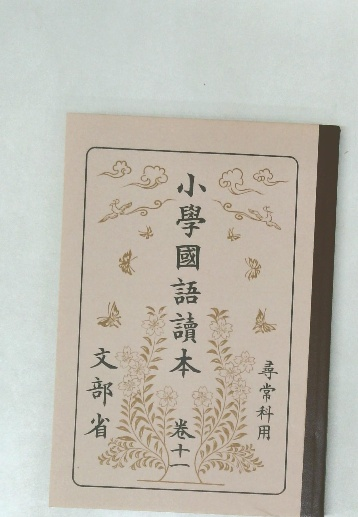 尋常科用
小學國語讀本
卷十一
文部省